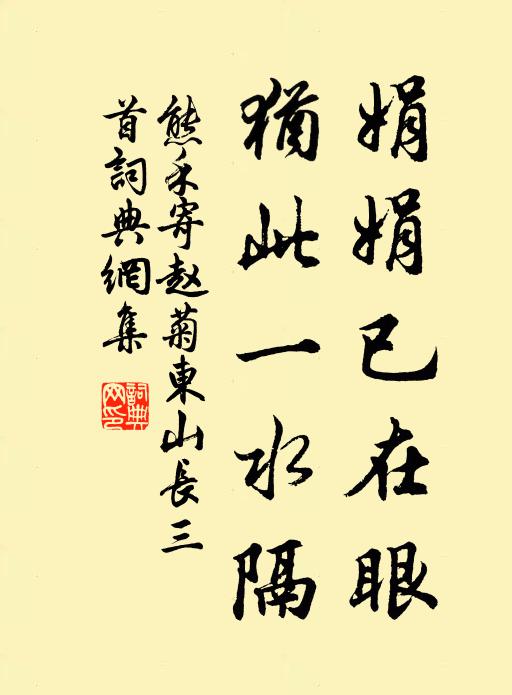 娟娟已在眼
猶此一水隔
熊禾寄赵菊東山長三
首詞典網集
詞典网印